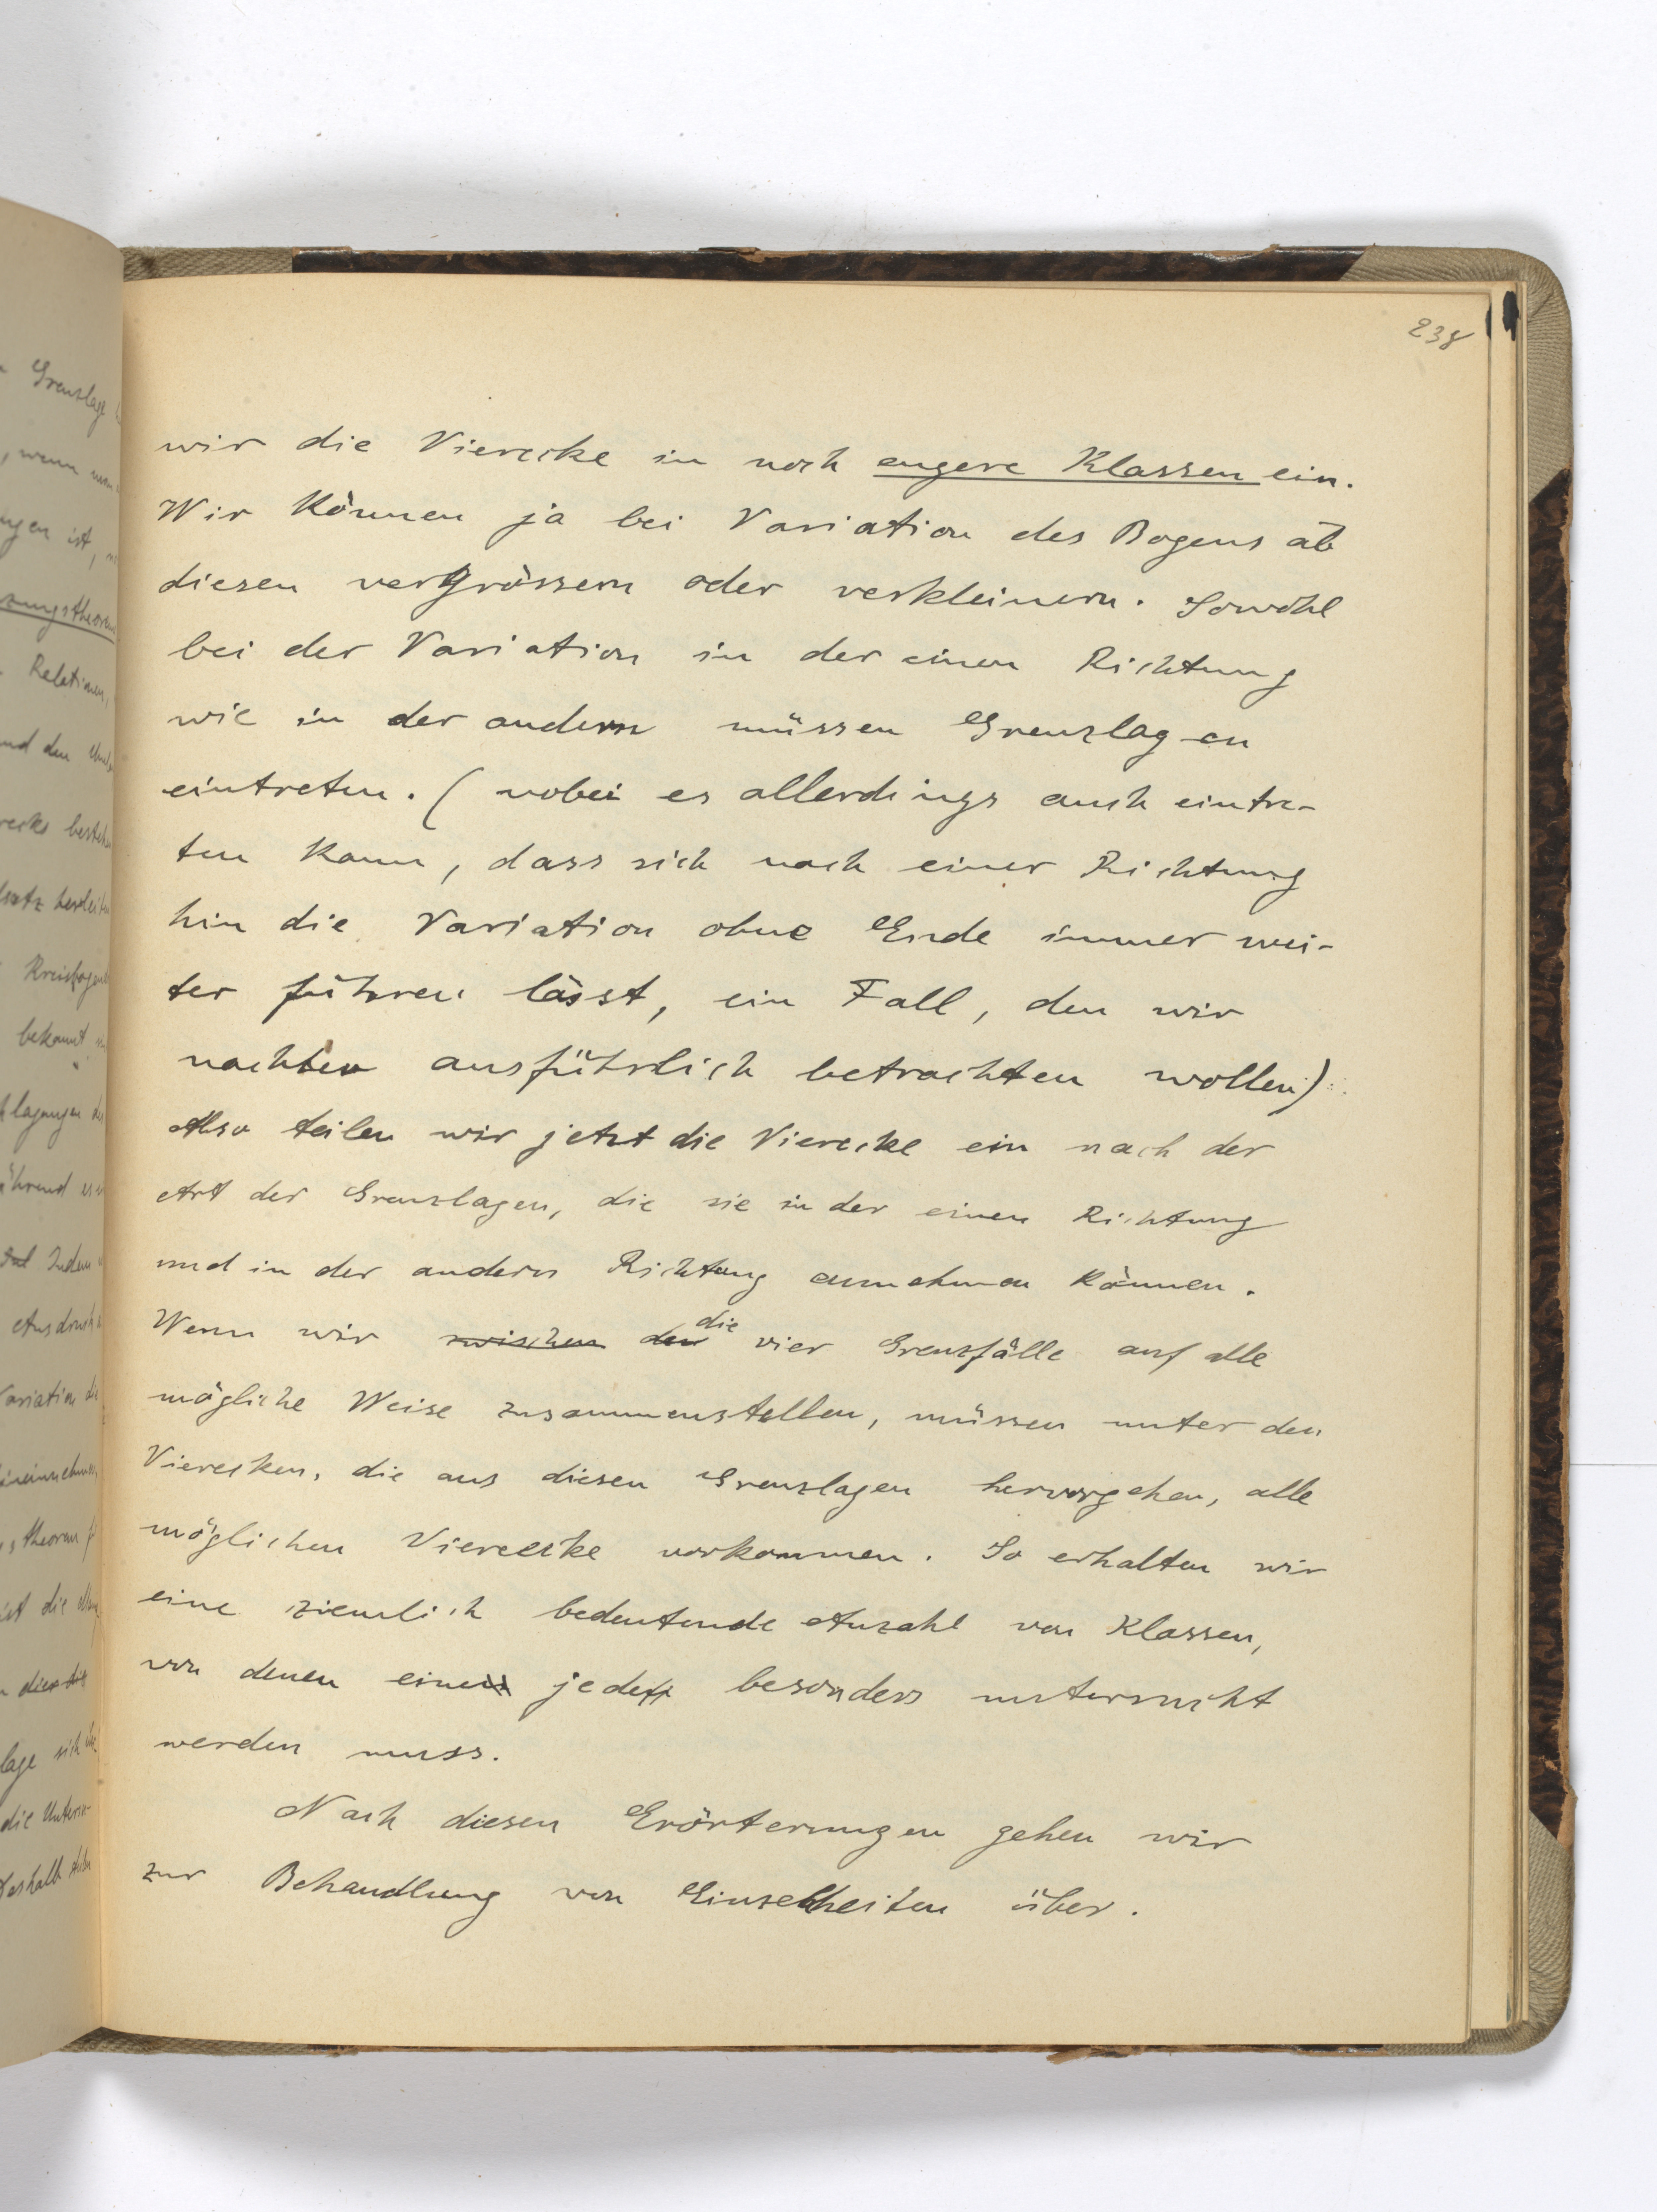 238
wir die Vierecke in noch engere Klassen ein.
Wir können ja bei Variation des Bogens ab
diesen vergrössern oder verkleinern. Sowohl
bei der Variation in der einen Richtung
wie in der andern müssen Grenzlagen
eintreten. (wobei es allerdings auch eintre-
ten kann, dass sich nach einer Richtung
hin die Variation ohne Ende immer wei-
ter führen lässt, ein Fall, den wir
nachher ausführlich betrachten wollen)
Also teilen wir jetzt die Vierecke ein nach der
Art der Grenzlagen, die sie in der einen Richtung
und in der andern Richtung annehmen können.
Wenn wir zwischen den die vier Grenzfälle auf alle
mögliche Weise zusammenstellen, müssen unter den
Vierecken, die aus diesen Grenzlagen hervorgehen, alle
möglichen Vierecke vorkommen. So erhalten wir
eine ziemlich bedeutende Anzahl von Klassen,
von denen eine jede besonders untersucht
werden muss.
Nach diesen Erörterungen gehen wir
zur Behandlung von Einzelheiten über.
Grenzlage
, wenn man
ist,
Relationen,
und den
Kreisbogen
bekannt
Indem
Ausdruck
Variation die
ist die
lage sich
die Unter-
deshalb